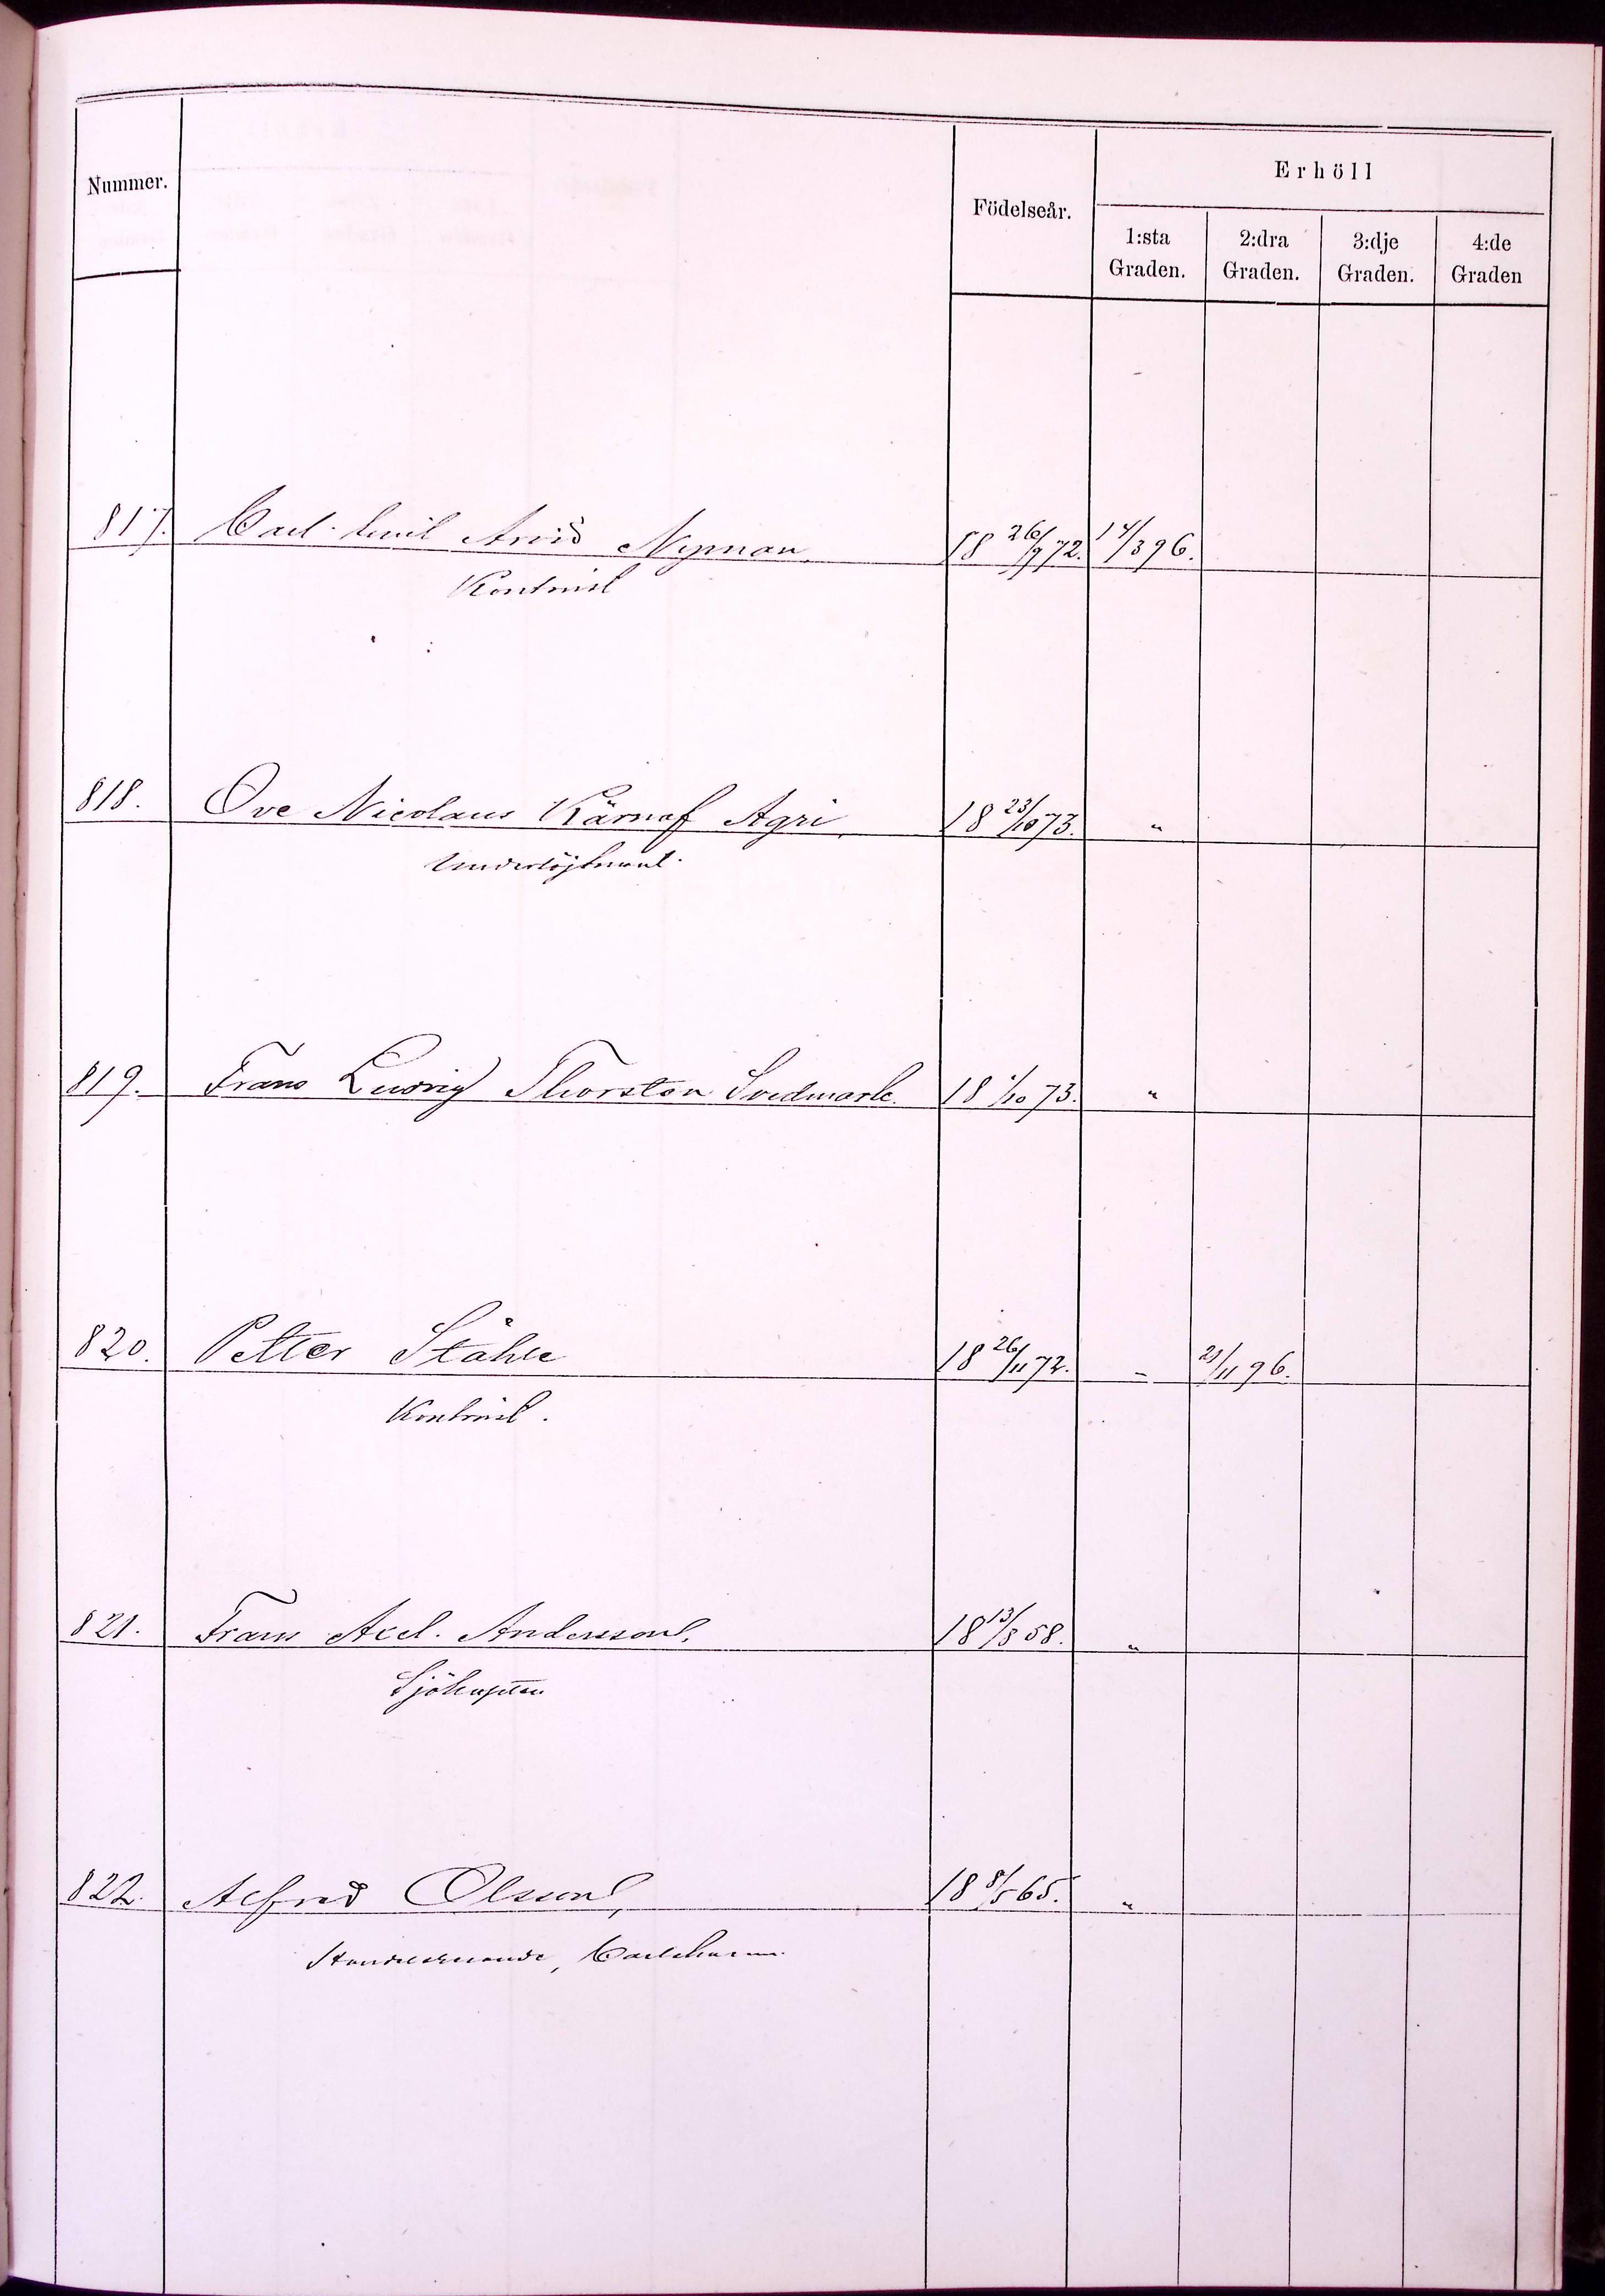 Nummer.
Födelseår.
Erhöll
1:sta Graden.
2:dra Graden.
3:dje Graden.
4:de Graden
817. Carl Emil Arvid Nyman 18 26/9 72. 14/3 96.
818. Ove Nicolaus Agri 18 23/10 73. "
Underlöjtnant.
819. Frans Ludvig Thorsten Svedmark. 18 1/10 73. "
820. Petter Ståhle 18 26/11 72. " 21/11 96.
821. Frans Axel Andersson. 18 13/5 58. "
Sjökapten
822. Alfred Olsson, 18 8/5 65. "
Handelsrerande, Carlshamn.